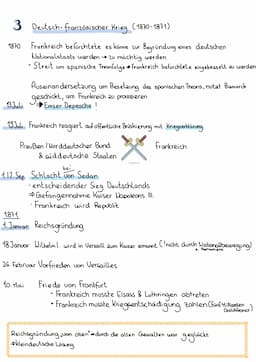 3 Deutsch-französischer Krieg (1870-1871)
1870 Frankreich befürchtete es käme zur Begründung eines deutschen
Nationalstaats werden → zu mächtig werden
• Streit um spanische Thronfolge → Frankreich befürchtete eingekesselt zu werden
Auseinandersetzung um Besetzung des spanischen Throns, nutzt Bismarck
geschickt, um Frankreich zu provozieren
13. Juli → Emser Depesche!
19. Juli Frankreich reagiert auf öffentliche Brüskierung mit Kriegserklärung
Preußen/Norddeutscher Bund
& süddeutsche Staaten
Frankreich
1./2. Sep Schlacht bei Sedan
• entscheidender Sieg Deutschlands
→ Gefangennahme Kaiser Napoleons III.
• Frankreich wird Republik
1871
1. Januar Reichsgründung
18. Januar Wilhelm I. wird in Versaill zum Kaiser ernannt (! nicht durch Nationalbewegung)
26. Februar Vorfrieden von Versailles
10. Mai Friede von Frankfurt
• Frankreich musste Elsass & Lothringen abtreten
• Frankreich musste Kriegsentschädigung zahlen (Fünf Milliarden
Goldfrancs)
Reichsgründung „von oben" → durch die alten Gewalten war geglückt
→ kleindeutsche Lösung